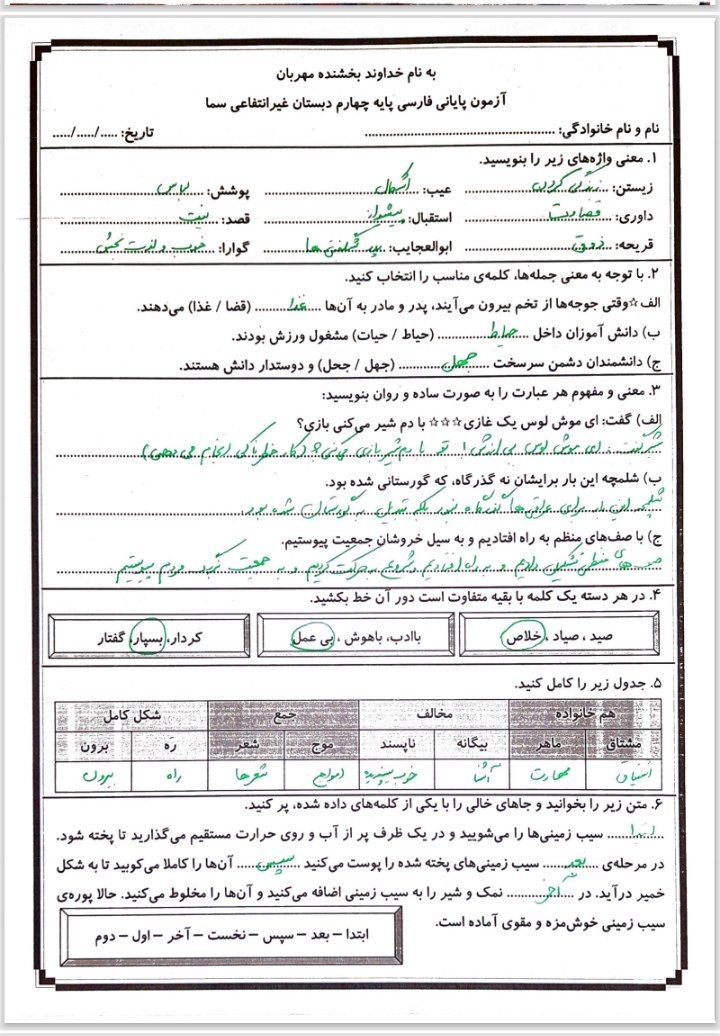 به نام خداوند بخشنده مهربان
آزمون پایانی فارسی پایه چهارم دبستان غیرانتفاعی سما
نام و نام خانوادگی: ........................ تاریخ: ...../...../.....
۱. معنی واژه‌های زیر را بنویسید.
زیستن: زندگی کردن عیب: اشکال پوشش: لباس
داوری: قضاوت استقبال: پیشواز قصد: نیت
قریحه: ذوق ابوالعجایب: شگفتی ها گوارا: خوب و لذت بخش
۲. با توجه به معنی جمله‌ها، کلمه‌ی مناسب را انتخاب کنید.
الف☆وقتی جوجه‌ها از تخم بیرون می‌آیند، پدر و مادر به آن‌ها غذا (قضا / غذا) می‌دهند.
ب) دانش آموزان داخل حیاط (حیاط / حیات) مشغول ورزش بودند.
ج) دانشمندان دشمن سرسخت جهل (جهل / جحل) و دوستدار دانش هستند.
۳. معنی و مفهوم هر عبارت را به صورت ساده و روان بنویسید:
الف) گفت: ای موش لوس یک غازی☆☆☆ با دم شیر می‌کنی بازی؟
شیر گفت: ای موش لوس بی ارزش! تو با دم شیر بازی می‌کنی؟ (کار خطرناکی انجام می‌دهی)
ب) شلمچه این بار برایشان نه گذرگاه، که گورستانی شده بود.
شلمچه این بار برای عراقی‌ها گذرگاه نبود بلکه تبدیل به گورستان شده بود.
ج) با صف‌های منظم به راه افتادیم و به سیل خروشان جمعیت پیوستیم.
صف های منظمی تشکیل دادیم و به راه افتادیم و شروع به حرکت کردیم و به جمعیت مردم پیوستیم.
۴. در هر دسته یک کلمه با بقیه متفاوت است دور آن خط بکشید.
صید ، صیاد ، خلاص باادب، باهوش ، بی عمل کردار، بسپار، گفتار
۵. جدول زیر را کامل کنید.
هم خانواده مخالف جمع شکل کامل
مشتاق ماهر بیگانه ناپسند موج شعر رَه برون
اشتیاق مهارت آشنا خوب، پسندیده امواج شعرها راه بیرون
۶. متن زیر را بخوانید و جاهای خالی را با یکی از کلمه‌های داده شده، پر کنید.
ابتدا سیب زمینی‌ها را می‌شویید و در یک ظرف پر از آب و روی حرارت مستقیم می‌گذارید تا پخته شود.
در مرحله‌ی بعد سیب زمینی‌های پخته شده را پوست می‌کنید سپس آن‌ها را کاملا می‌کوبید تا به شکل
خمیر درآید. در آخر نمک و شیر را به سیب زمینی اضافه می‌کنید و آن‌ها را مخلوط می‌کنید. حالا پوره‌ی
سیب زمینی خوش‌مزه و مقوی آماده است.
ابتدا – بعد – سپس – نخست – آخر – اول – دوم